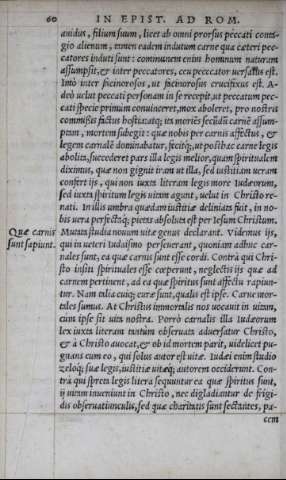 60 IN EPIST. AD ROM.
auidus, filium suum, licet ab omni prorsus peccati conta-
gio alienum, tamen eadem indutum carne qua cæteri pec-
catores induti sunt: communem enim hominum naturam
assumpsit, & inter peccatores, ceu peccator uersatus est.
Imò inter facinorosos, ut facinorosus crucifixus est. A-
deò ueluti peccati personam in se recepit, ut peccatum pec-
cati specie primùm conuinceret, mox aboleret, pro nostris
commissis factus hostia: atq; ita moriens secūdū carnē assum-
ptam, mortem subegit: quæ nobis per carnis affectus, &
legem carnalē dominabatur, fecitq́;, ut posthac carne legis
abolita, succederet pars illa legis melior, quam spiritualem
diximus, quæ non gignit iram ut illa, sed iustitiam ueram
confert ijs, qui non iuxta literam legis more Iudæorum,
sed iuxta spiritum legis uitam agunt, uelut in Christo re-
nati. In illis umbra quædam iustitiæ delineata fuit, in no-
bis uera perfectaq́; pietas absoluta est per Iesum Christum.
Quæ carnis Mutata studia nouum uitæ genus declarant. Videmus ijs,
sunt sapiunt. qui in ueteri Iudaismo perseuerant, quoniam adhuc car-
nales sunt, ea quæ carnis sunt esse cordi. Contrà qui Chri-
sto insiti spirituales esse cœperunt, neglectis ijs quæ ad
carnem pertinent, ad ea quæ spiritus sunt affectu rapiun-
tur. Nam talia cuiq; curæ sunt, qualis est ipse. Carne mor-
tales sumus. At Christus immortalis nos uocauit in uitam,
cùm ipse sit uita nostra. Porrò carnalis illa Iudæorum
lex iuxta literam tantùm obseruata aduersatur Christo,
& à Christo auocat, & ob id mortem parit, uidelicet pu-
gnans cum eo, qui solus autor est uitæ. Iudæi enim studio
zeloq́; suæ legis, iustitiæ uitæq́; autorem occiderunt. Con-
trà qui spreta legis litera sequuntur ea quæ spiritus sunt,
ij uitam inueniunt in Christo, nec digladiantur de frigi-
dis obseruatiunculis, sed quæ charitatis sunt sectantes, pa-
cem